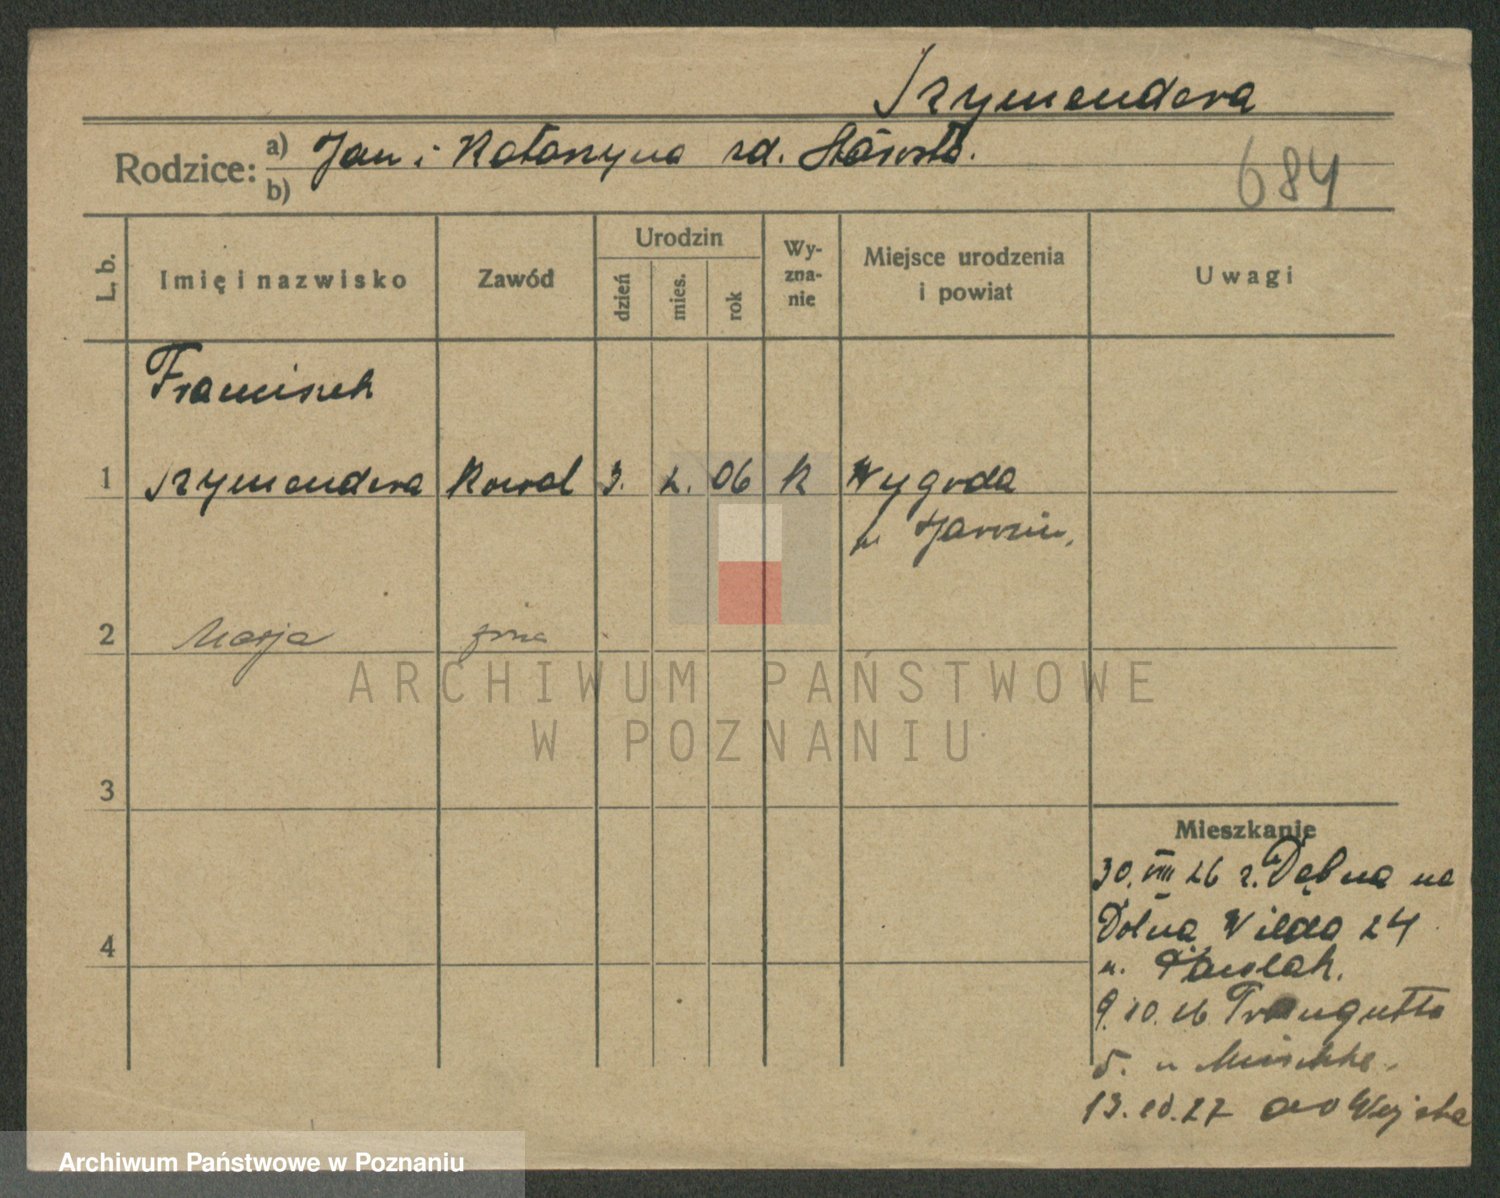 Szymendera
Rodzice: a) Jan i Katarzyna zd.
b)
684
L. b.
Imię i nazwisko
Zawód
Urodzin
dzień
mies.
rok
Wy-
zna-
nie
Miejsce urodzenia
i powiat
Uwagi
Franciszek
1 Szymendera Kowal 3. 2. 06 k Wygoda
Jarocin,
2 Marja żona
3
4
Mieszkanie
30. VIII 26 z. Dębna na
Dolna Wilda 24
u. Pawlak.
9. 10. 26 Traugutta
5. u
13. 10. 27 do Wojska
ARCHIWUM PAŃSTWOWE
W POZNANIU
Archiwum Państwowe w Poznaniu